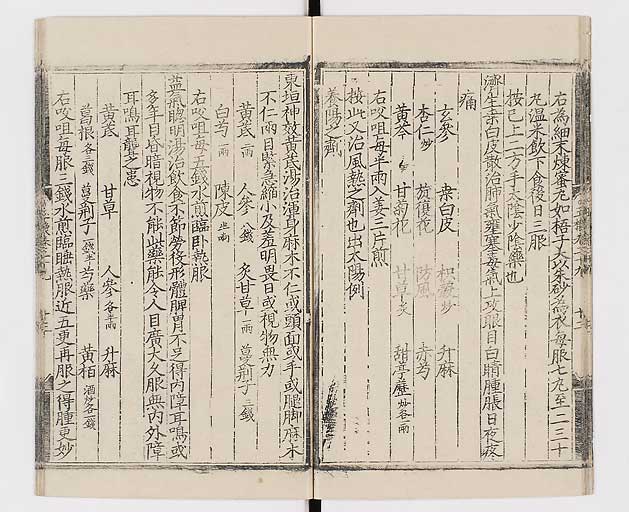 右為細末煉蜜丸如梧子大朱砂為衣每服七丸至二三十
丸溫米飲下食後日三服
按已上二方手太陰少陰藥也
濟生桑白皮散治肺氣壅塞毒氣上攻眼目白睛腫脹日夜疼
痛
玄參 桑白皮 枳殼炒 升麻
杏仁炒 旋復花 防風 赤芍
黃芩 甘菊花 甘草炙 甜葶藶炒各一兩
右㕮咀每半兩入姜三片煎
按此又治風熱之劑也出太陽例
養陽之劑
東垣神效黃芪湯治渾身麻木不仁或頭面或手或腿脚麻木
不仁兩目緊急縮小及羞明畏日或視物無力
黃芪二兩 人參八錢 炙甘草一兩 蔓荊子二錢
白芍一兩 陳皮半兩
右㕮咀每五錢水煎臨臥熱服
益氣聰明湯治飲食不節勞役形體脾胃不足得內障耳鳴或
多年目昏暗視物不能此藥能令人目廣大久服無內外障
耳鳴耳聾之患
黃芪 甘草 人參各半兩 升麻
葛根各三錢 蔓荊子一錢半 芍藥 黃栢酒炒各一錢
右㕮咀每服三錢水煎臨睡熱服近五更再服之得腫更妙